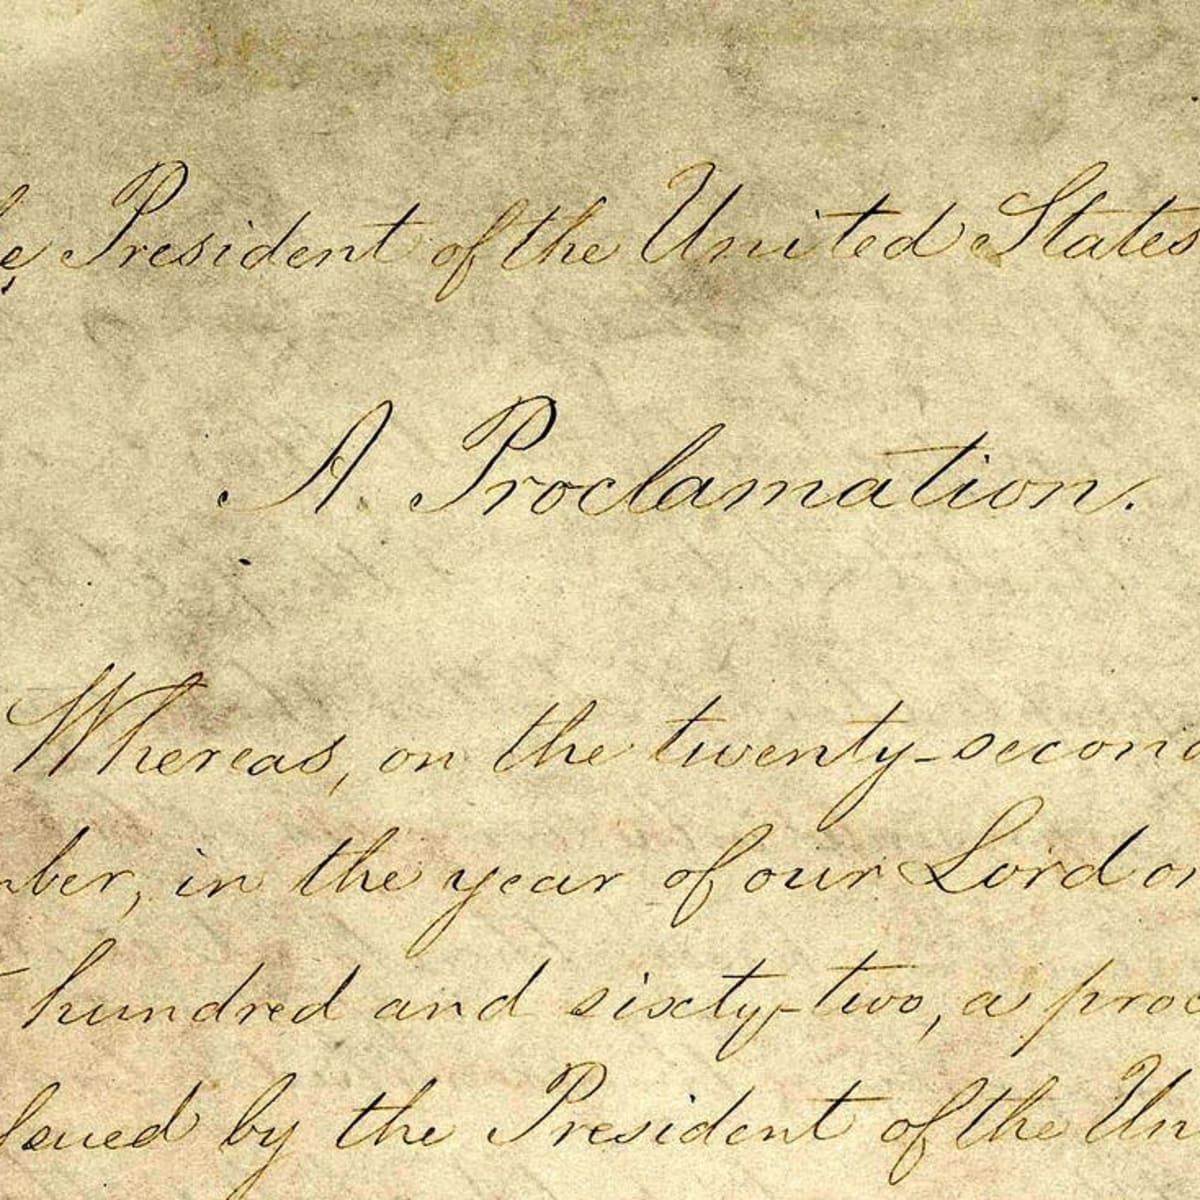 he President of the United States
A Proclamation.
Whereas, on the twenty-second
mber, in the year of our Lord on
t hundred and sixty-two, a proc
ssued by the President of the Un